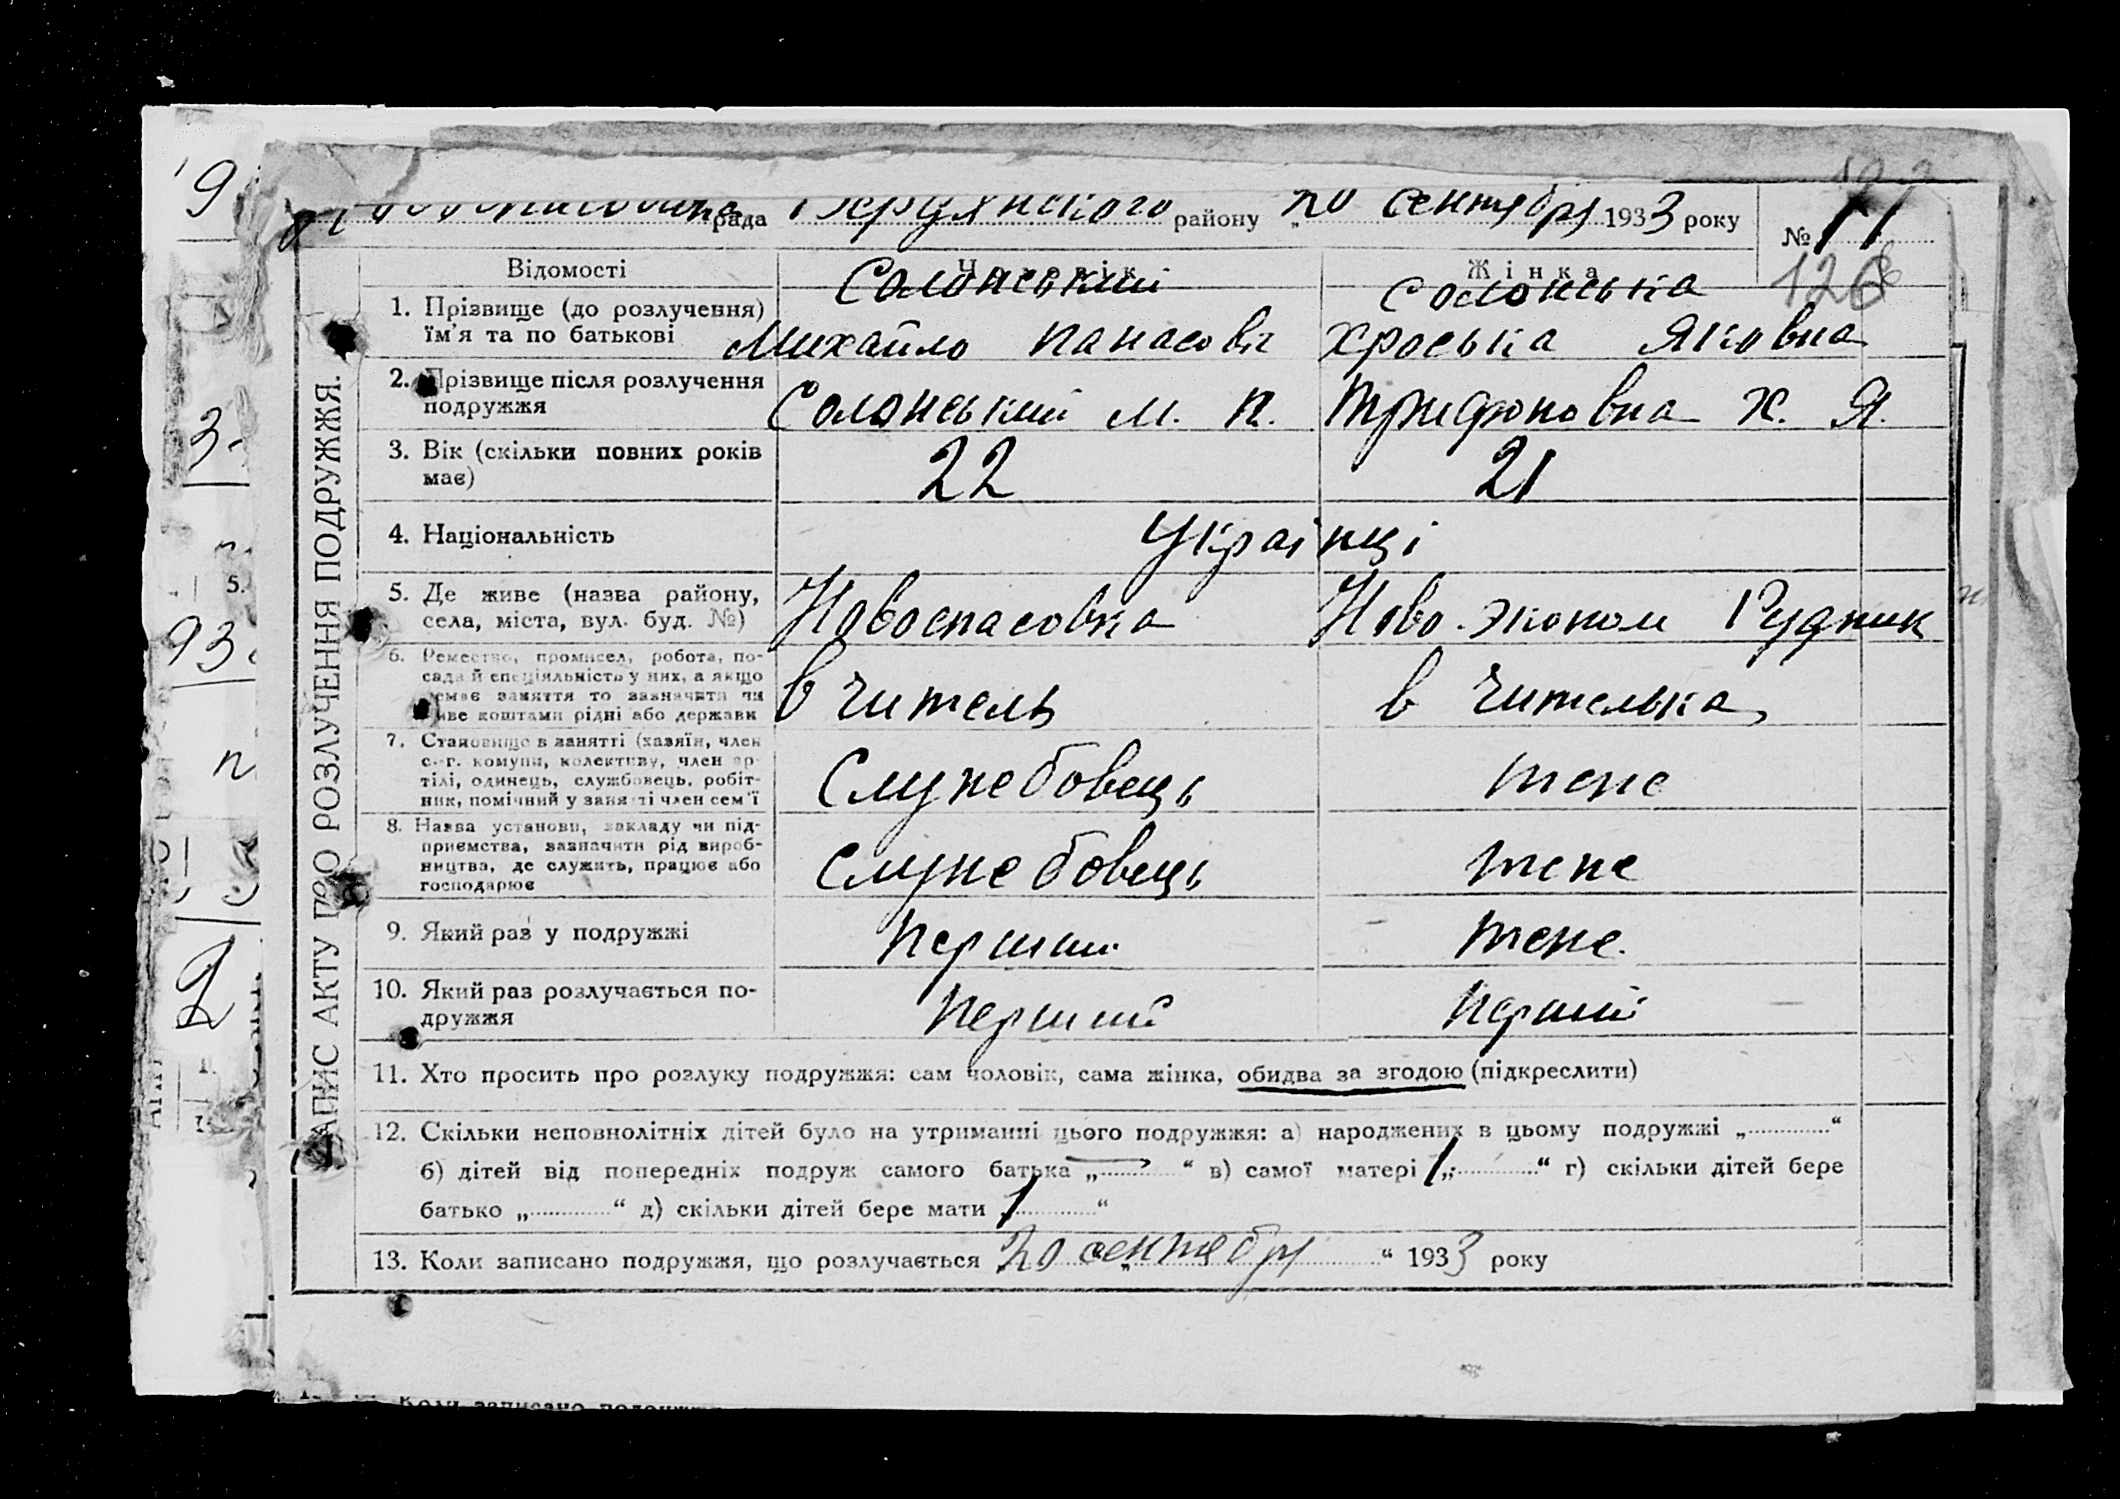 рада району 20 сентября 1933 року
№ 11
126
ЗАПИС АКТУ ПРО РОЗЛУЧЕННЯ ПОДРУЖЖЯ.
Відомості Чоловік Жінка
Солонський Солонська
1. Прізвище (до розлучення)
їм'я та по батькові Михайло Панасовіч Хроська Яковна
2. Прізвище після розлучення
подружжя Солонський М. П. Трифоновна Х. Я.
3. Вік (скільки повних років
має) 22 21
4. Національність Украінці
5. Де живе (назва району,
села, міста, вул. буд. №) Новоспасовка Ново-Эконом Рудник
6. Ремество, промисел, робота, по-
сада й спеціяльність у них, а якщо
немає заняття то зазначити чи
живе коштами рідні або держави вчитель вчителька
7. Становище в занятті (хазяїн, член
с.-г. комуни, колективу, член ар-
тілі, одинець, службовець, робіт-
ник, помічний у занятті член сем'ї Служебовець теже
8. Назва установи, закладу чи під-
приємства, зазначити рід вироб-
ництва, де служить, працює або
господарює Служебовець теже
9. Який раз у подружжі Перший теже.
10. Який раз розлучається по-
дружжя Перший Перший
11. Хто просить про розлуку подружжя: сам чоловік, сама жінка, обидва за згодою (підкреслити)
12. Скільки неповнолітніх дітей було на утриманні цього подружжя: а) народжених в цьому подружжі „ “
б) дітей від попередніх подруж самого батька „ — “ в) самої матері 1 „ “ г) скільки дітей бере
батько „ “ д) скільки дітей бере мати 1 “
13. Коли записано подружжя, що розлучається 20 сентября “ 1933 року
Коли записано